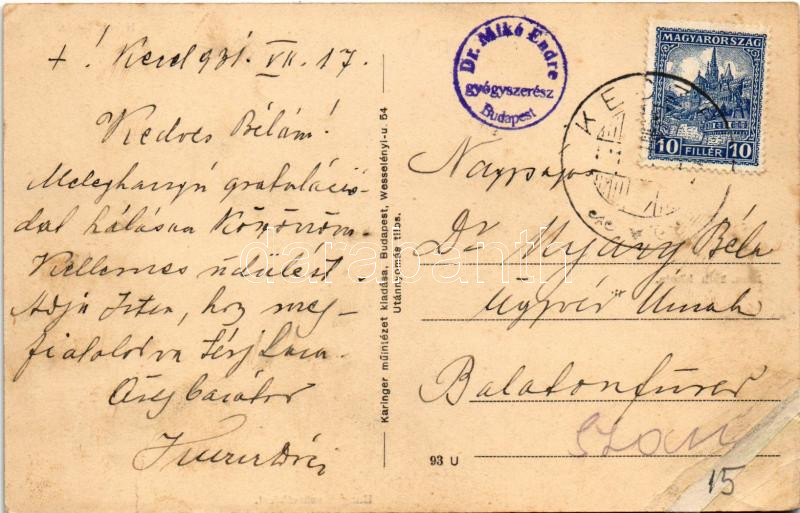 +! Kecel 931. VII. 17.
Kedves Bélám!
Meleghangú gratuláció-
dat hálásan köszönöm.
Kellemes üdülést.
Adja Isten, hogy meg-
fiatalodva térj haza.
Öreg barátod
Karinger műintézet kiadása, Budapest, Wesselényi-u. 54
Utánnyomás tilos.
Dr. Mikó Endre
gyógyszerész
Budapest
MAGYARORSZÁG
10 FILLÉR 10
Nagyságos
Dr. Nyáry Béla
Ügyvéd Úrnak
Balatonfüred
93 U
15
darabanth